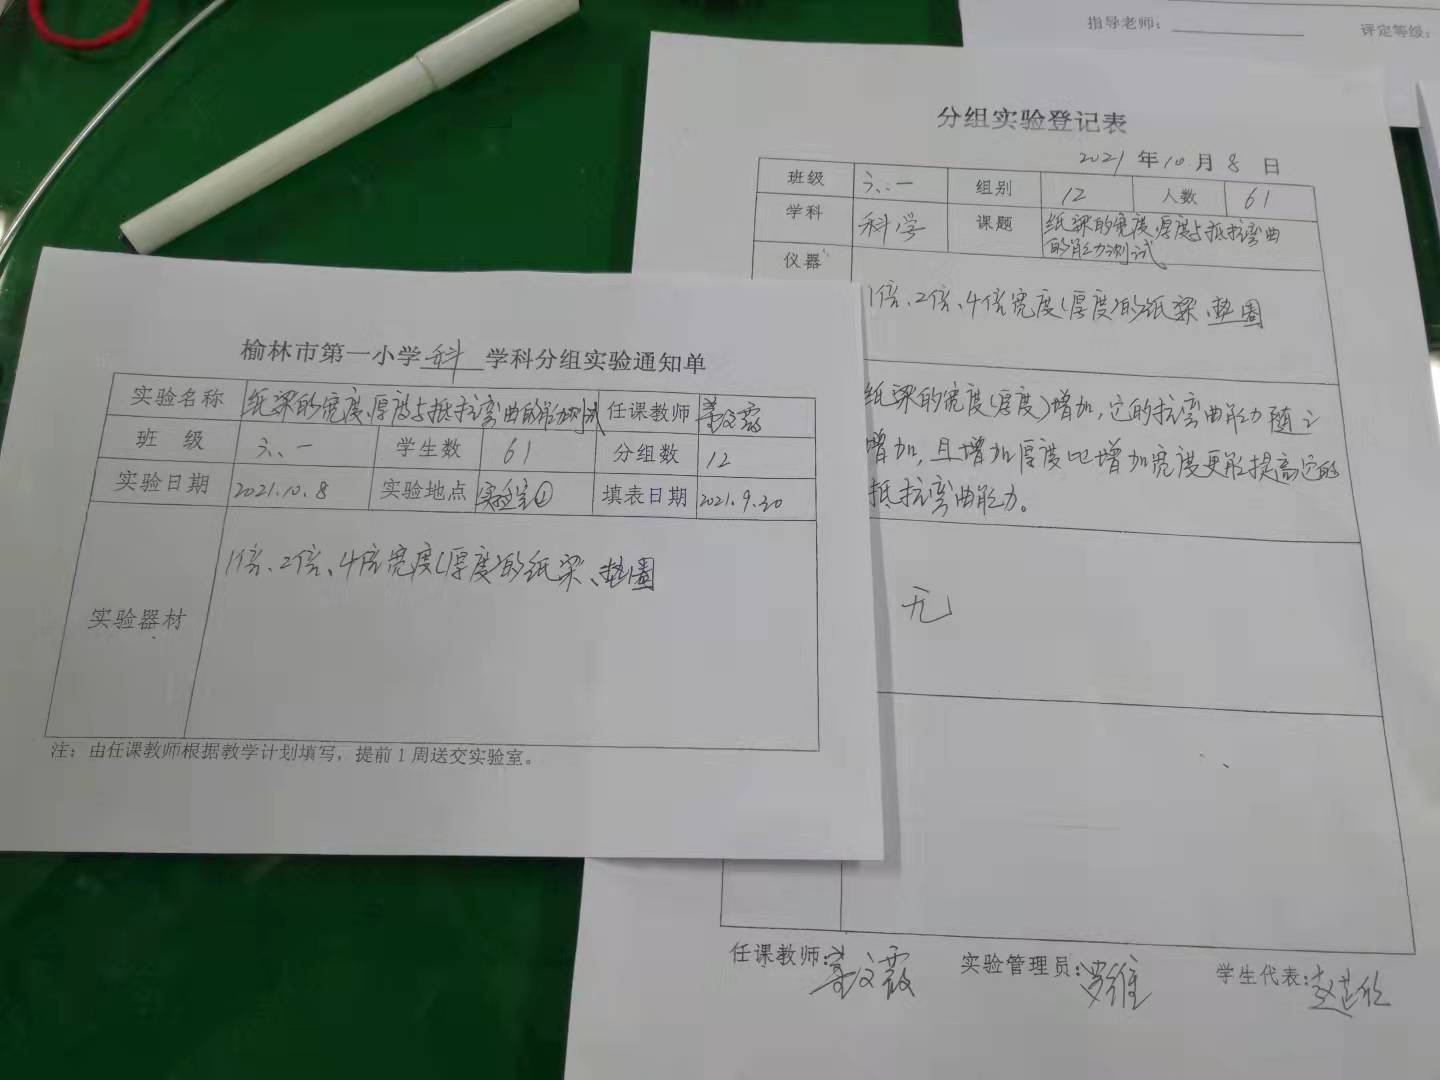 指导老师： 评定等级：
分组实验登记表
2021 年 10 月 8 日
班级 六.一 组别 12 人数 61
学科 科学 课题 纸梁的宽度、厚度与抵抗弯曲
的能力测试
仪器
1倍、2倍、4倍宽度(厚度)的纸梁、垫圈
纸梁的宽度(厚度)增加,它的抗弯曲能力随之
增加,且增加厚度比增加宽度更能提高它的
抵抗弯曲能力。
无
任课教师: 实验管理员: 罗维 学生代表:
榆林市第一小学 科 学科分组实验通知单
实验名称 纸梁的宽度、厚度与抵抗弯曲的能力测试 任课教师
班 级 六.一 学生数 61 分组数 12
实验日期 2021.10.8 实验地点 实验室① 填表日期 2021.9.30
1倍、2倍、4倍宽度(厚度)的纸梁、垫圈
实验器材
注：由任课教师根据教学计划填写，提前 1 周送交实验室。